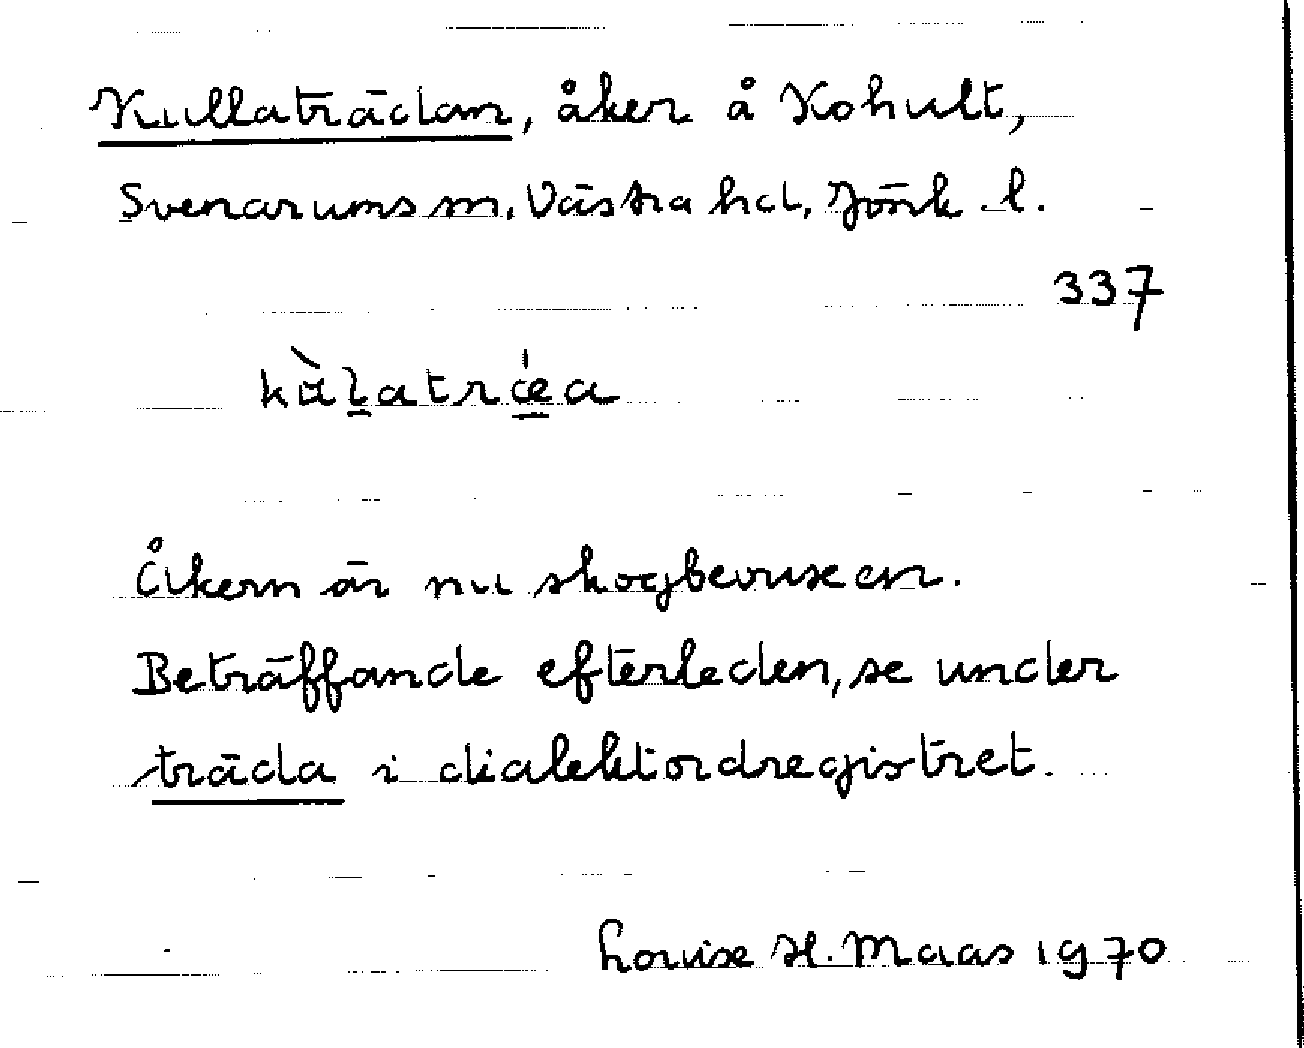 Kullaträdan, åker å Kohult,
Svenarums sn, Västra hd, Jönk. l.
337
kàlatrǽa
Åkern är nu skogbevuxen.
Beträffande efterleden, se under
träda i dialektordregistret.
Louise H. Maas 1970